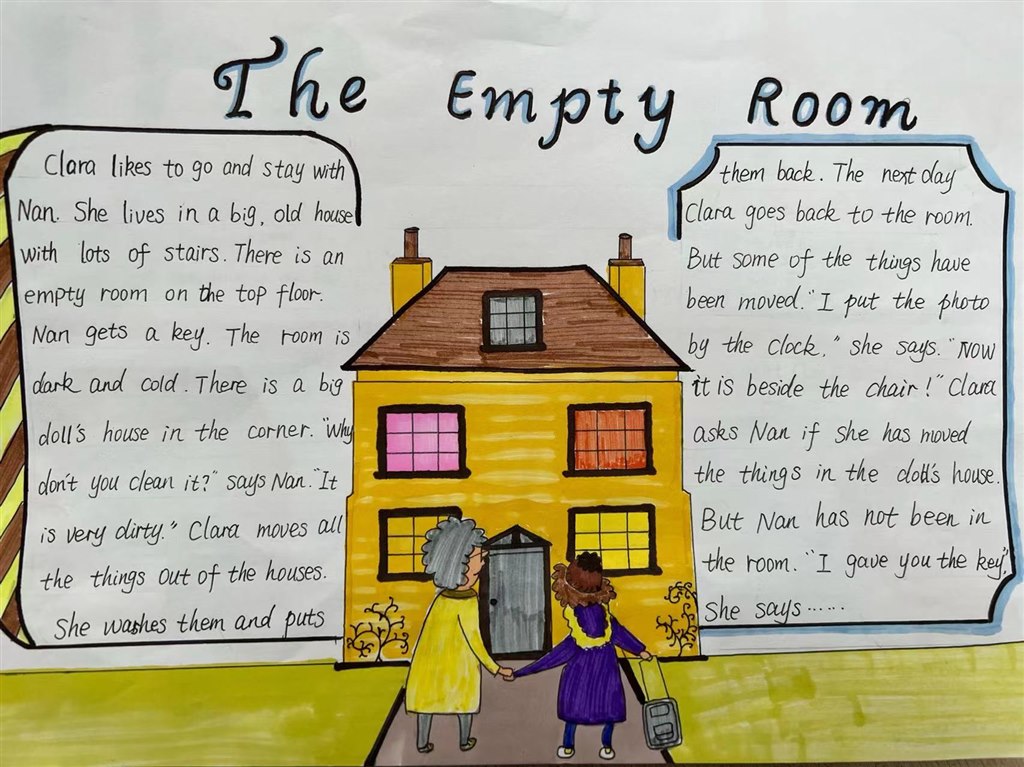 The Empty Room
Clara likes to go and stay with
Nan. She lives in a big, old house
with lots of stairs. There is an
empty room on the top floor.
Nan gets a key. The room is
dark and cold. There is a big
doll's house in the corner. "Why
don't you clean it?" says Nan. "It
is very dirty." Clara moves all
the things out of the houses.
She washes them and puts
them back. The next day
Clara goes back to the room.
But some of the things have
been moved. "I put the photo
by the clock," she says. "Now
it is beside the chair!" Clara
asks Nan if she has moved
the things in the doll's house.
But Nan has not been in
the room. "I gave you the key,"
She says······